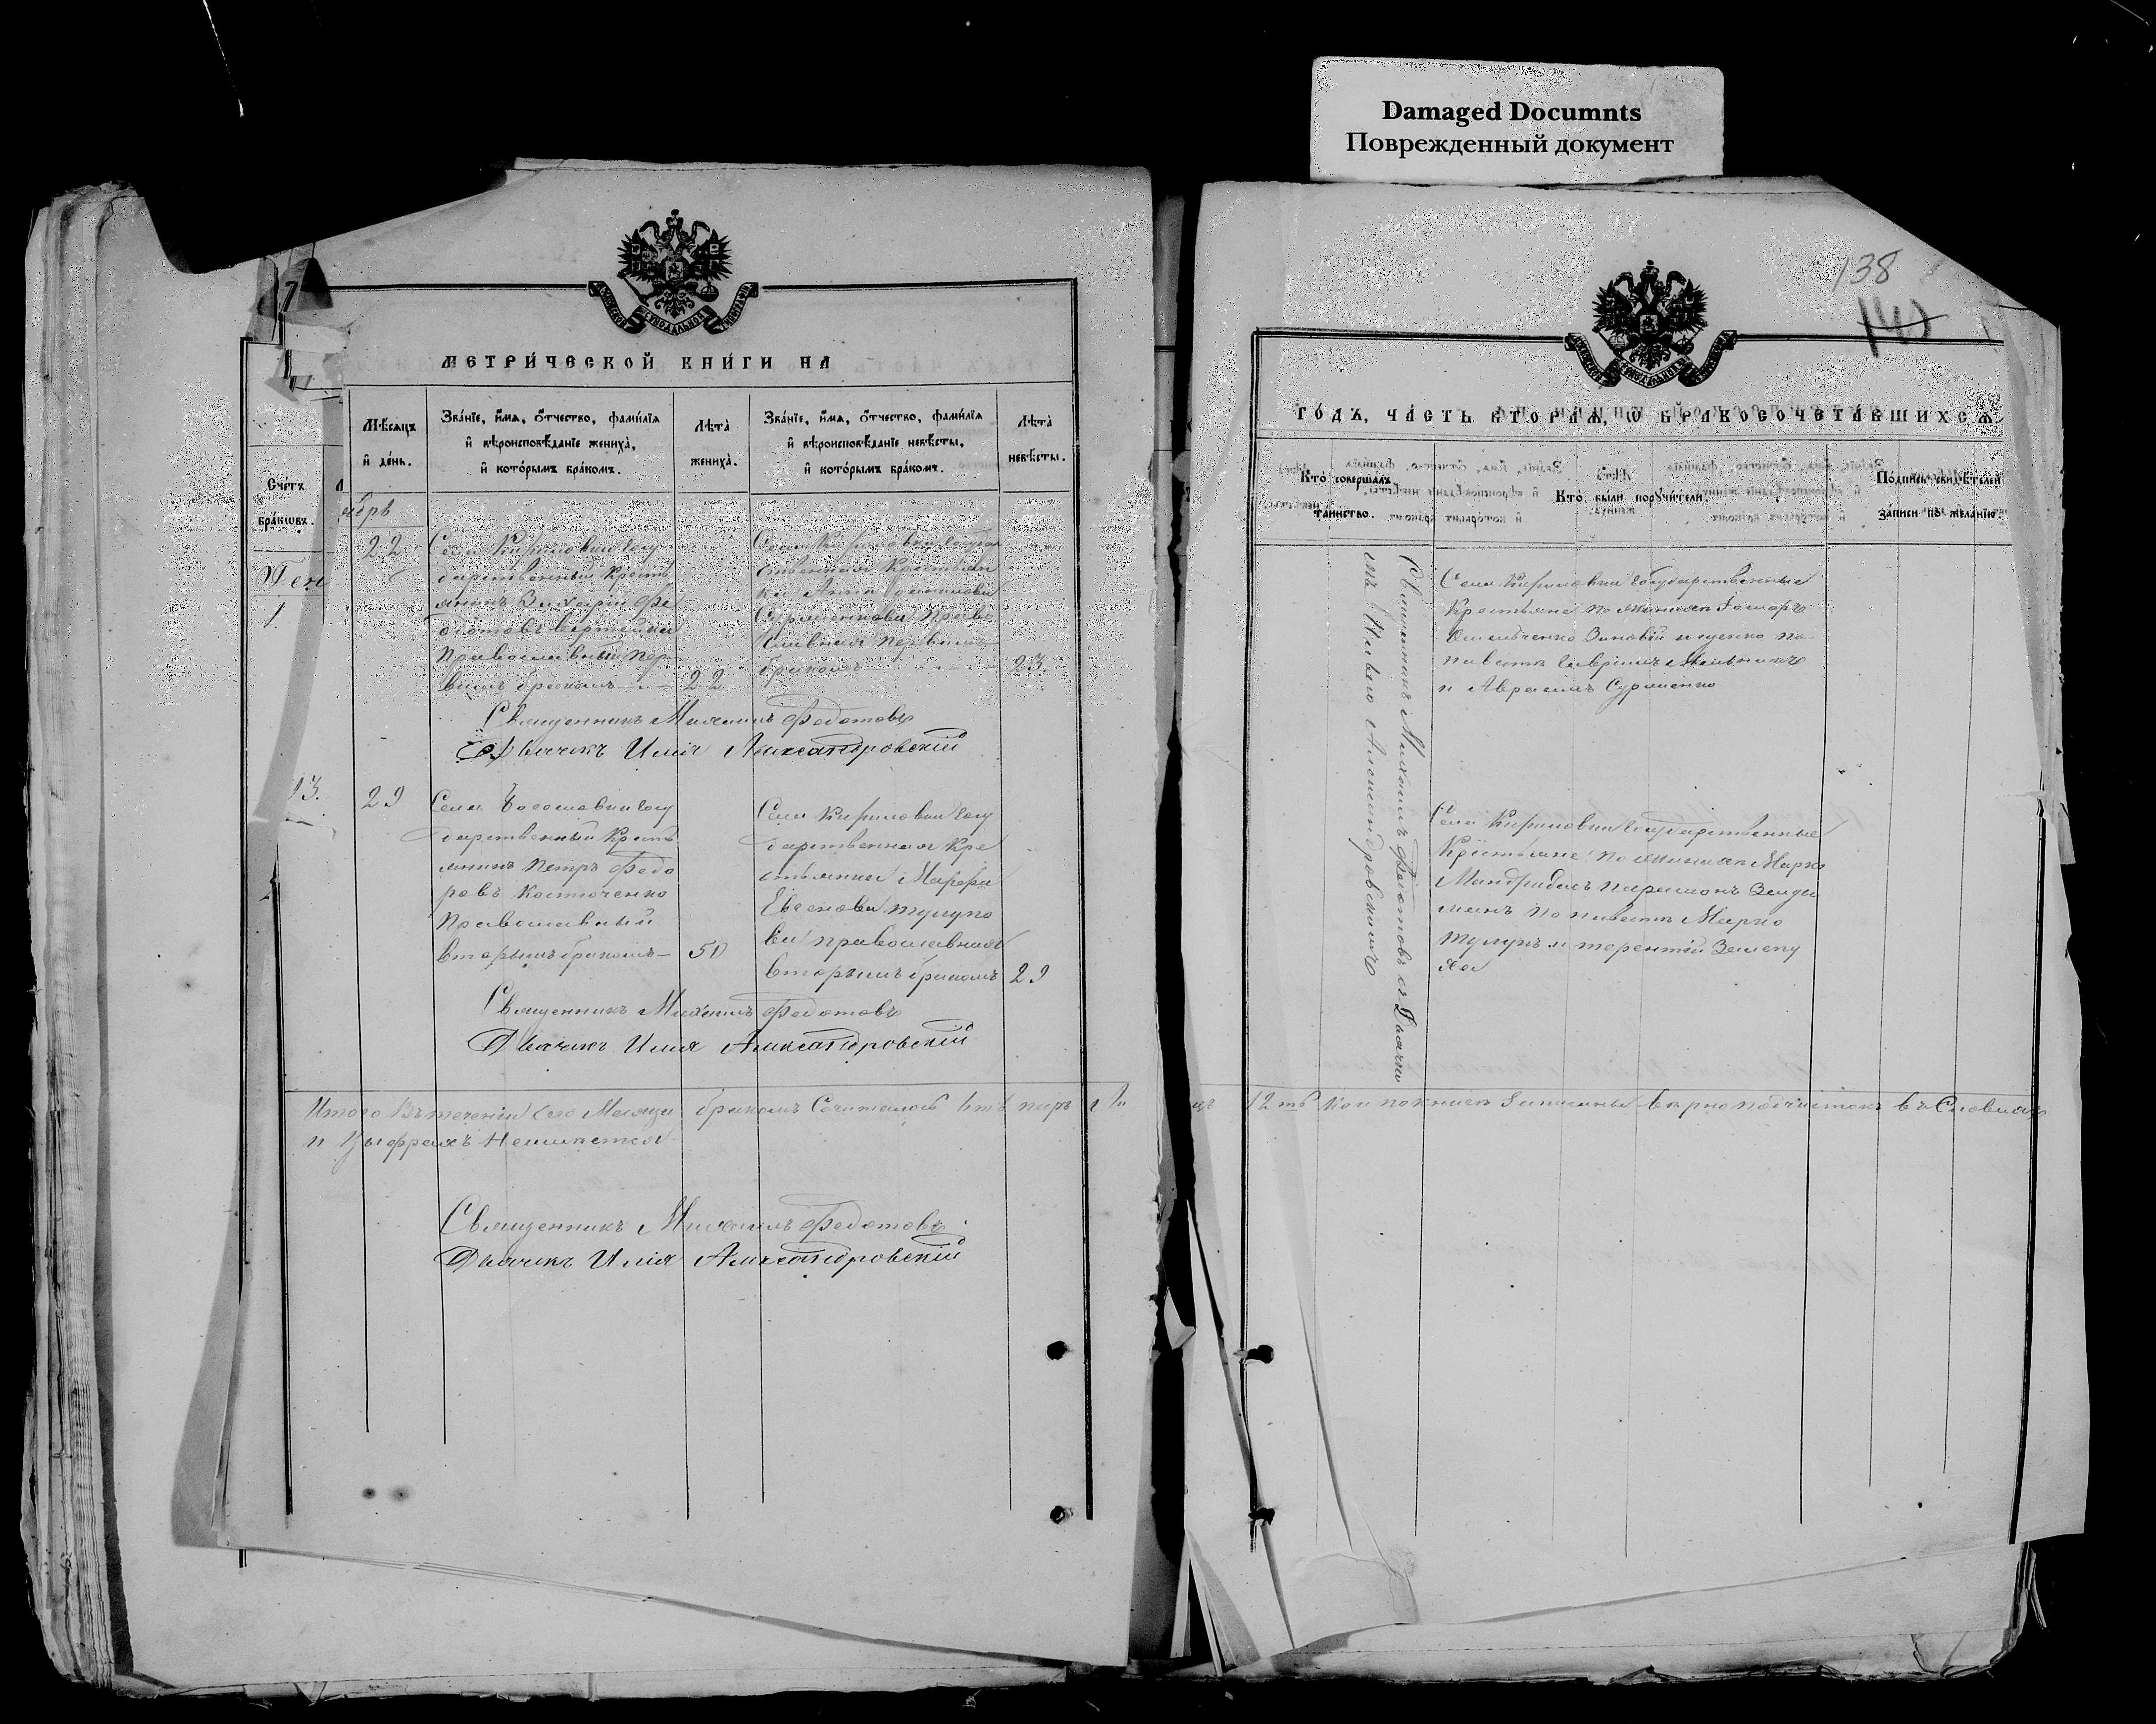 Damaged Documnts
Поврежденный документ
138
140
МЕТРИЧЕСКОЙ КНИГИ НА
Счетъ браковъ.
Мѣсяцъ и день.
Званіе, имя, отчество, фамилія и вѣроисповѣданіе жениха, и которымъ бракомъ.
Лѣта жениха.
Званіе, имя, отчество, фамилія и вѣроисповѣданіе невѣсты, и которымъ бракомъ.
Лѣта невѣсты.
Ген
1.
22
Села Кириловки Госу
дарственный Кресть
янинъ Захарій Фе
дотовъ
Православный пер
вымъ бракомъ
22
Села Кириловки Государ
ственная Крестьян
ка Анна
Сурженкова Право
славная первымъ
бракомъ
23.
Священникъ Михаилъ Федотовъ
Дьячикъ Илія Александровскій
13.
29
Села Богословки Госу
дарственный Кресть
янинъ Петръ Федо
ровъ Косточенко
Православный
вторымъ бракомъ
50
Села Кириловки Госу
дарственная Кре
стьянка Марфа
Евсенова Тулупо
ва православная
вторымъ бракомъ
29
Священникъ Михаилъ Федотовъ
Дьячикъ Илія Александровскій
Итого въ теченіи сего Месяца бракомъ Сочиталось паръ
и Цыфрахъ Неимѣется
Священникъ Михаилъ Федотовъ
Дьячикъ Илія Александровскій
ГОДЪ, ЧАСТЬ ВТОРАЯ, Ѡ БРАКОСОЧЕТАВШИХСЯ
Кто совершалъ таинство.
Кто были поручители.
Подписи свидѣтелей записи по желанію.
Священникъ Михаилъ Федотовъ съ Дьячко
мъ Иліею Александровскимъ
Села Кириловки Государственные
Крестьяне по женихѣ
Омельченко Зиновій Ищенко по
невѣстѣ Гавріилъ Мельникъ
и Авраамъ Сурженко
Села Кириловки Государственные
Крестьяне по женихѣ Марко
Мандрабалъ
по невѣстѣ Марко
Тулупъ и Терентій
12ть кои по книгѣ Записаны вѣрно подчистокъ въ Словахъ